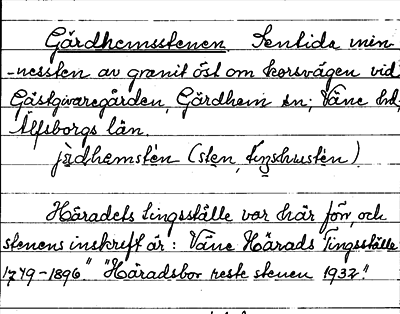 Gärdhemsstenen. Sentida min-
-nessten av granit öst om korsvägen vid
Gästgivaregården, Gärdhem sn; Väne hd,
Älfsborgs län.
jàdhemstén (sten, tingshusstén)
Häradets tingsställe var här förr, och
stenens inskrift är: Väne Härads Tingsställe
1779-1896." "Häradsbor reste stenen 1932."